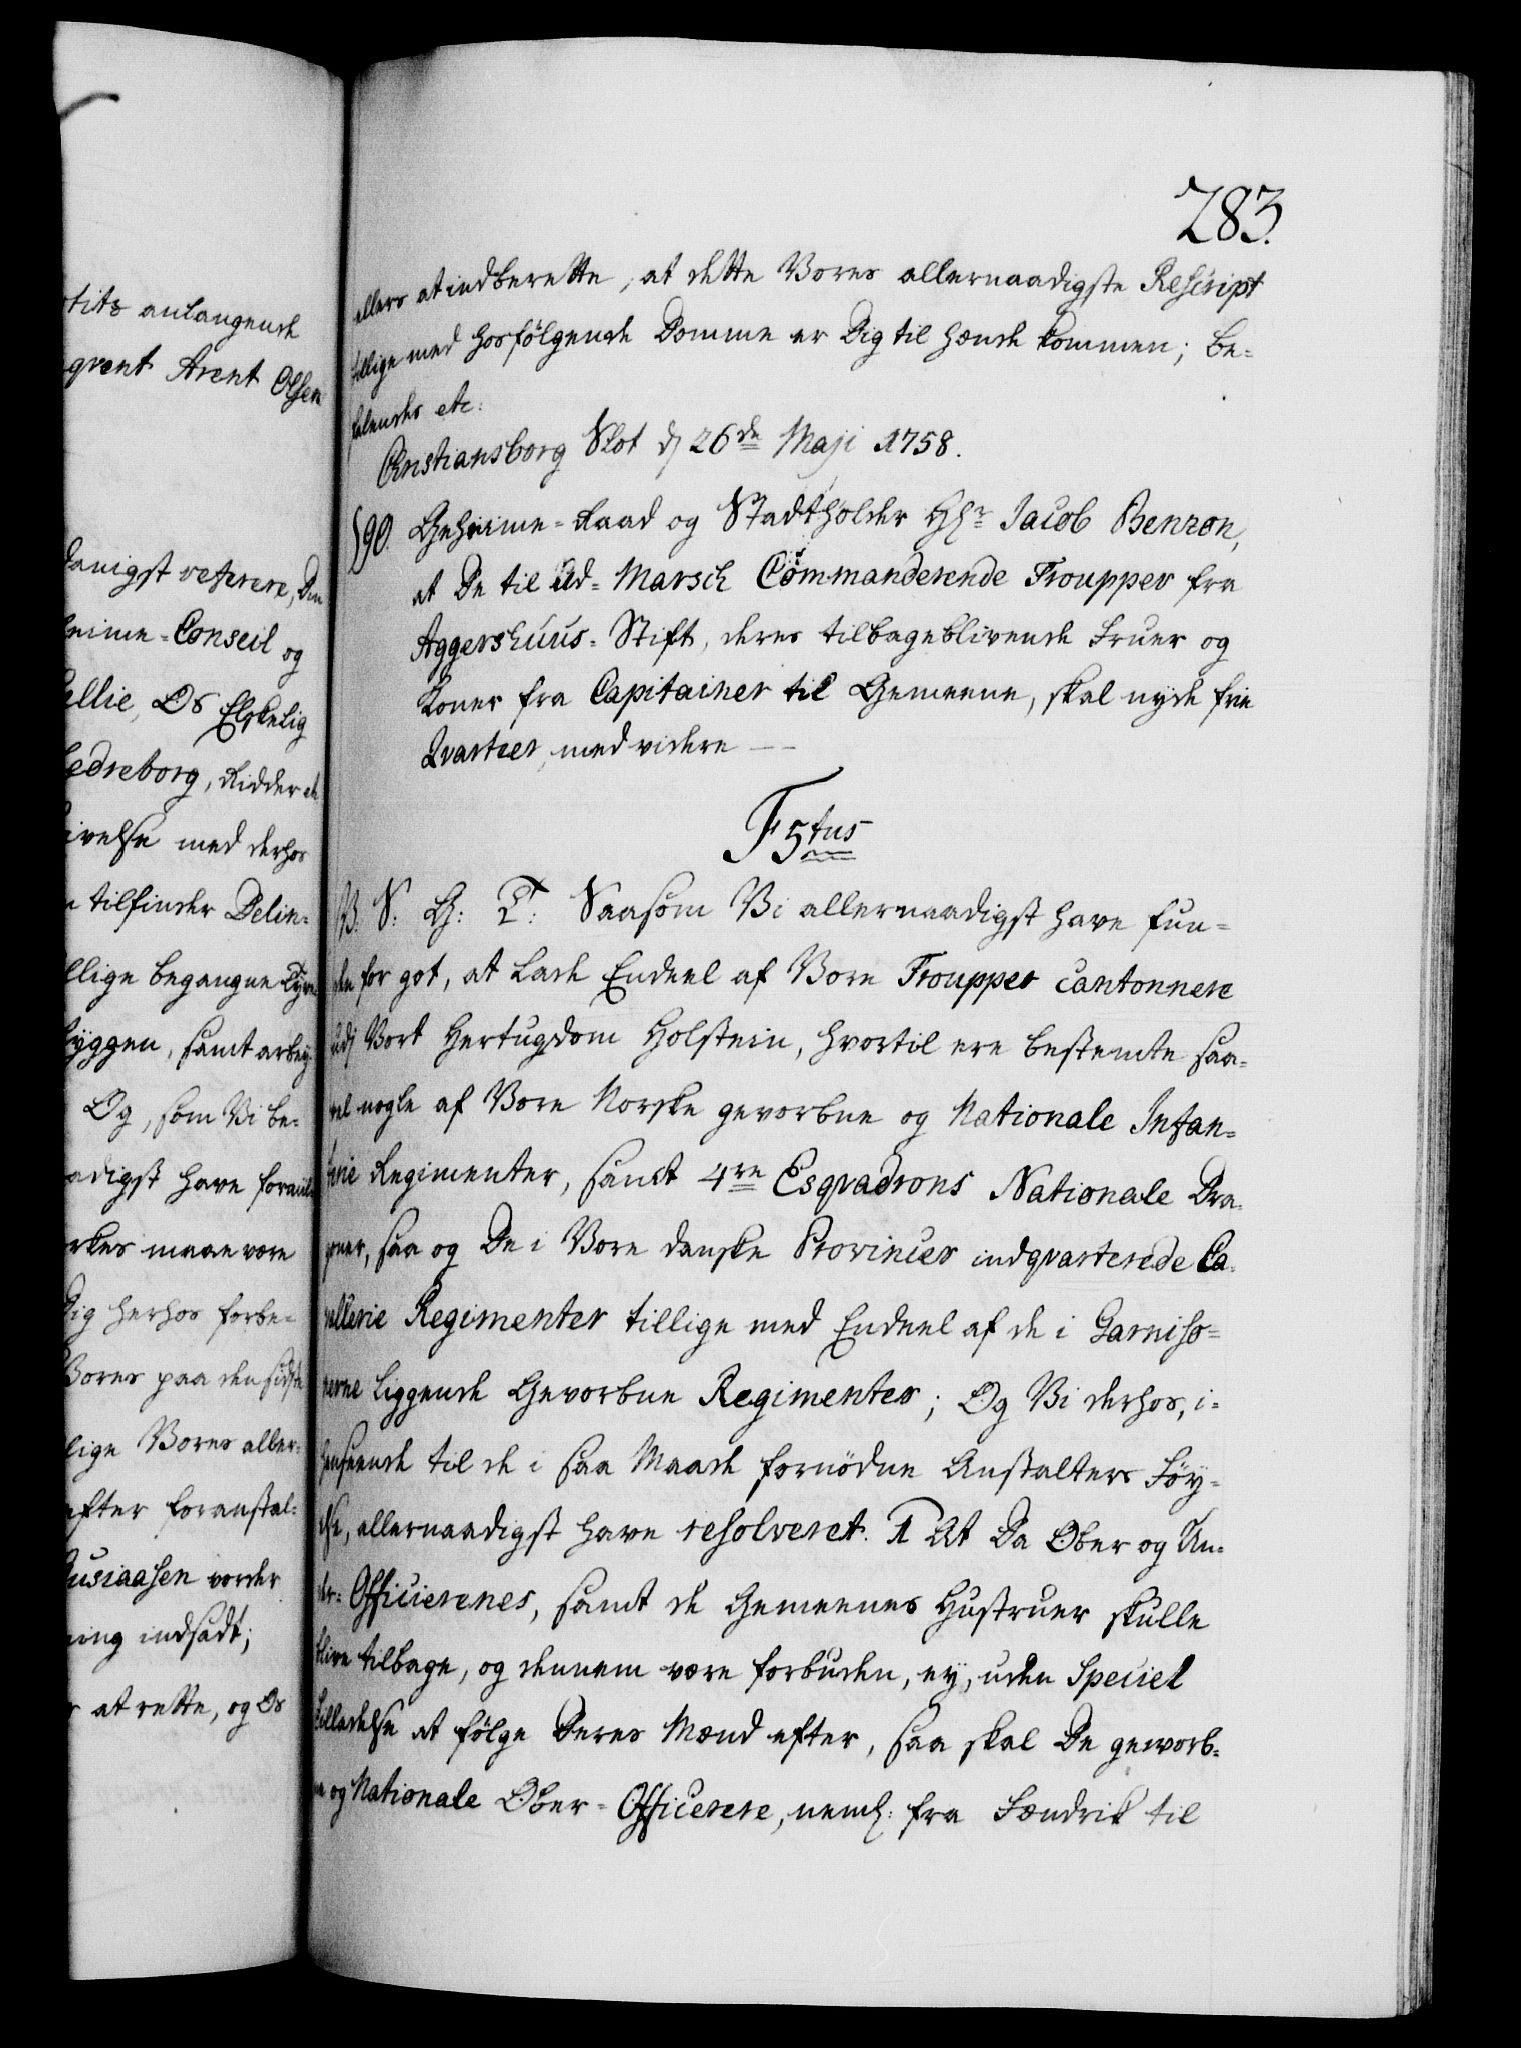 283.
ellers at indberette, at dette Vores allernaadigste Rescript
tillige med hosfølgende Domme er Dig til hænde kommen; Be-
falendes etc:
Christiansborg Slot d 26de Maji 1758.
590. Geheime-Raad og Stadtholder Hr Jacob Benzon,
at De til Ud-Marsch Commanderende Troupper fra
Aggershuus-Stift, deres tilbageblivende Fruer og
Koner fra Capitainer til Gemeene, skal nyde frie
Qvarteer, med videre —
F5tus
V: S: G: T: Saasom Vi allernaadigst have fun-
den for got, at lade Endeel af Vore Troupper cantonnere
udj Vort Hertugdom Holstein, hvortil ere bestemte saa-
vel nogle af Vore Norske gevorbne og Nationale Infan-
terie Regimenter, samt 4re Esqvadrons Nationale Dra-
goner, saa og De i Vore danske Provincer indqvarterede Ca-
vallerie Regimenter tillige med Endeel af de i Garniso-
nerne liggende Gevorbne Regimenter; Og Vi derhos, i-
henseende til de i saa Maade fornødne Anstalters Føy-
else, allernaadigst have resolveret. 1 At Da Ober og Un-
der-Officierernes, samt de Gemeenes Hustruer skulle
blive tilbage, og dennem være forbuden, ey, uden Speciel
Tilladelse at følge Deres Mænd efter, saa skal De geworb-
ne og Nationale Ober-Officerere, neml: fra Fændrik til
tits anlangende
qvent Arent Olsen
danigst referere, Den
heime-Conseil og
Os Elskelig
Ledreborg, Ridder etc
ivelse med derhos
tilfinder Delin-
llige begangne Tyve-
byggen, samt arbey-
Og, som Vi be-
adigst have foranle
rkes maae være
Dig herhos forbe-
Vores paa den sidste
lige Vores aller-
efter foranstal-
usiaasen vorder
ning indsadt;
at rette, og Os